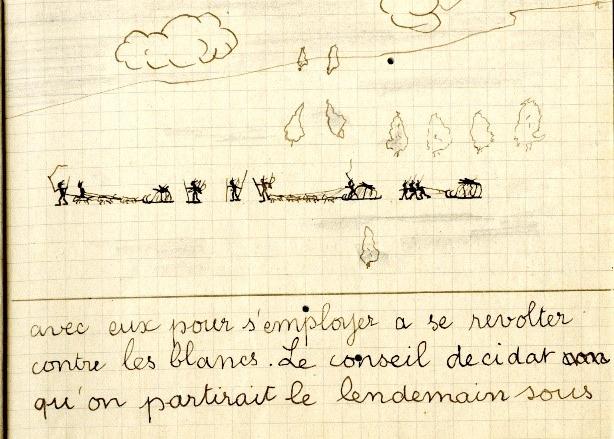 avec eux pour s'employer a se revolter
contre les blancs. Le conseil decidat
qu'on partirait le lendemain sous